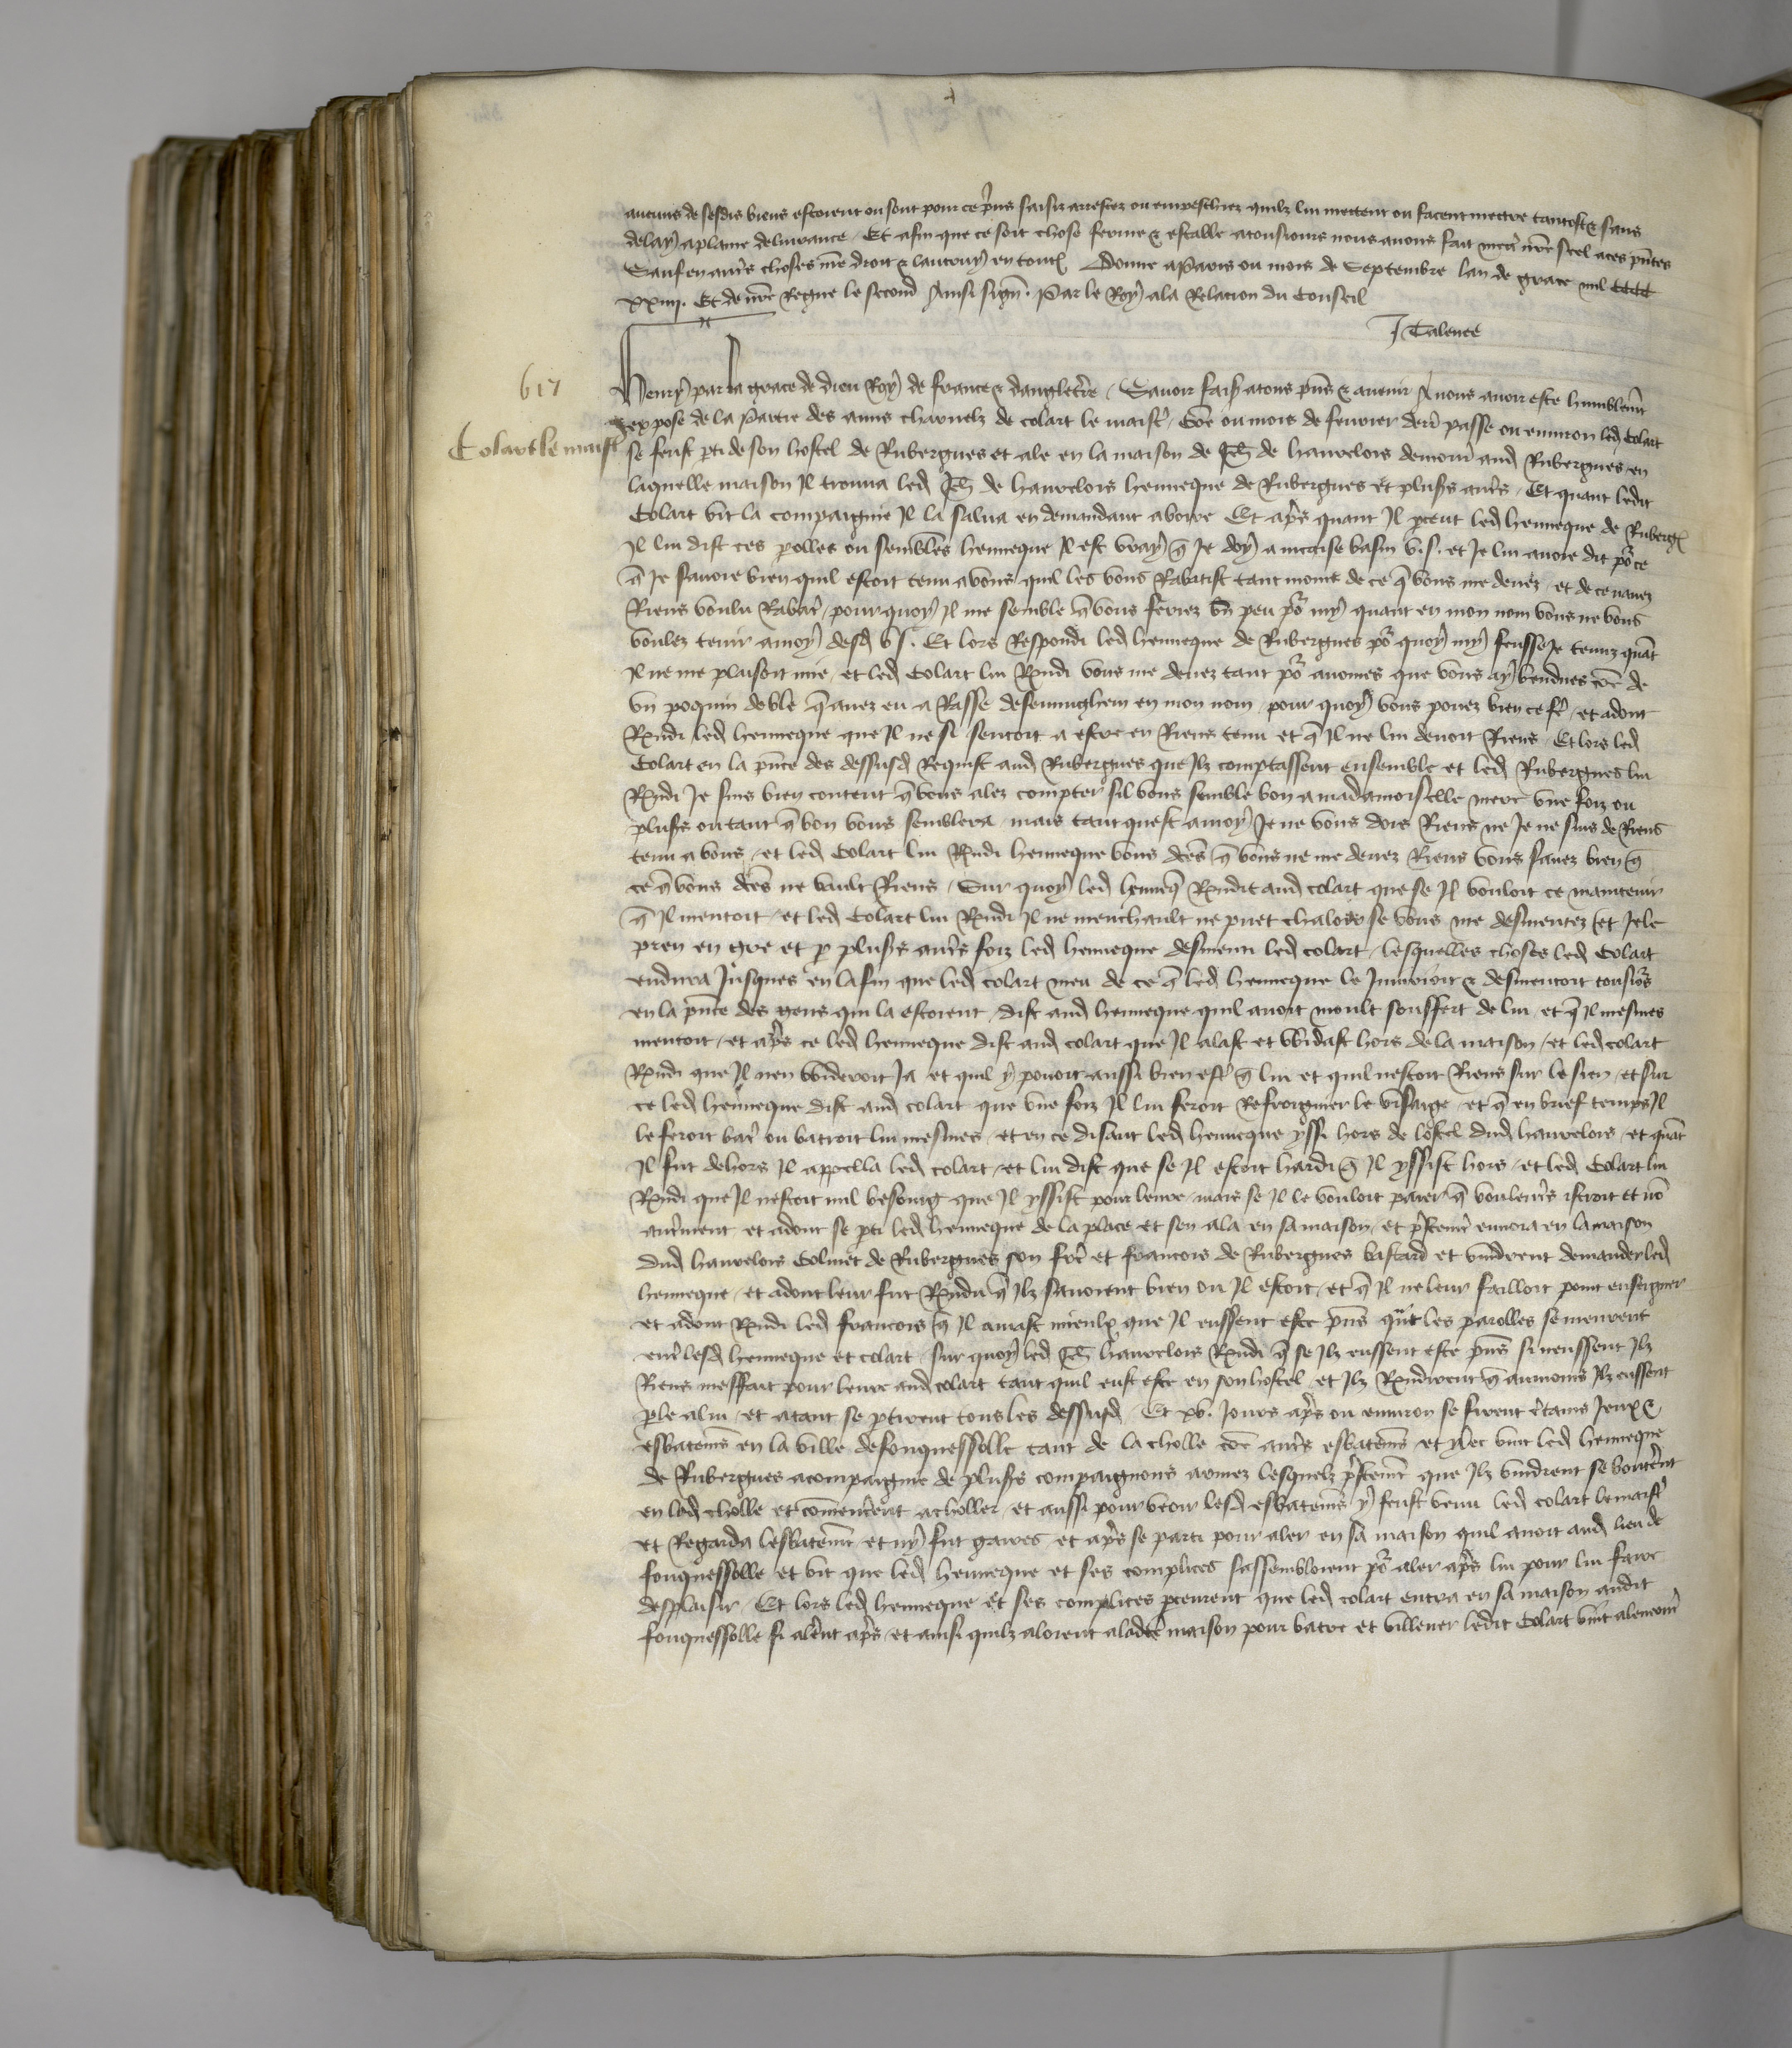 aucuns de sesdis biens estoient ou sont pour ce prins saisiz arrestez ou empeschiez quilz lui mettent ou facent mettre tantost & sans
delay a plaine delivrance / Et afin que ce soit chose ferme & estable a tousiours nous avons fait mett nre seel a ces pntes
Sauf en autres choses nre droit & lautruy en toutes Donne a Paris ou mois de Septembre lan de grace mil cccc
xxiiij. Et de nre Regne le second Ainsi signe. Par le Roy a la Relacion du Conseil
J Calente
617
Henry par la grace de dieu Roy de france & dangleterre / Savoir faisons a tous pns & avenir A nous avoir este humblemt
Colart le maist
expose de la partie des amis charnelz de colart le maistre / Come ou mois de fevrier derr passe ou environ led Colart
se feust pti de son hostel de Rubergues et ale en la maison de Jeh de havvelois demour aud Rubergues en
laquelle maison Il trouva led Jeh de havvelois henneque de Rubergues et plusrs autres / Et quant ledit
Colart vit la compaignie Il la salua en demandant a boire Et apres quant Il pceut led henneque de Rubergues
Il lui dist ces polles ou semblles henneque Il est vray q Je doy a basin v.s. et Je lui avoie dit por ce
q Je savoie bien quil estoit tenu a vous quil les vous Rabatist tant moins de ce q vous me devez / et de ce navez
Riens voulu Rabatr / pourquoy Il me semble q vous feriez un peu por my quant en mon nom vous ne vous
voulez tenir a moy desd v s. Et lors Respondi led henneque de Rubergues por quoy my feusse Je tenuz quat
Il ne me plaisoit mie / et led Colart lui Rndi vous me devez tant por avoines que vous ay vendues coe de
un poquin de ble q avez eu a Rasse desenninghem en mon nom / pour quoy vous povez bien ce fe / et adont
Rndi led henneque que Il ne si sentoit a estre en Riens tenu et q Il ne lui devoit Riens / Et lors led
Colart en la pnce des dessusd Requist aud Rubergues que Ilz comptassent ensemble et led Rubergues lui
Rndi Je suis bien content q vous alez compter sil vous semble bon a madamoiselle mere une foiz ou
plusrs ou tant q bon vous semblera / mais tant quest a moy Je ne vous dois Riens ne Je ne suis de Riens
tenu a vous / et led Colart lui Rndi henneque vous dtes q vous ne me devez Riens vous savez bien q
ce q vous dtes ne vault Riens / Sur quoy led henneq Rndit aud colart que se Il vouloit ce maintenir
q Il mentoit / et led Colart lui Rndi Il ne men chault ne puet chaloir se vous me desmentez et Je le
pren en gre et p plusrs autres foiz led henneque desmenti led colart / lesquelles choses led Colart
endura Jusques en la fin que led colart meu de ce q led henneque le Iniurioit & desmentoit tousiors
en la pnce des gens qui la estoient / dist aud henneque quil avoit moult souffert de lui / et q Il mesmes
mentoit / et apres ce led henneque dist aud colart que Il alast et widast hors de la maison / et led colart
Rndi que Il nen wideroit Ja et quil y povoit aussi bien estr q lui et quil nestoit Riens sur le sien / et sur
ce led henneque dist aud colart que une foiz Il lui feroit Refroignier le visaige / et q en brief temps Il
le feroit batr ou batroit lui mesmes / et en ce disant led henneque yssi hors de lostel dud havvelois / et quat
Il fut dehors Il appella led colart / et lui dist que se Il estoit hardi q Il yssist hors / et led Colart lui
Rndi que Il nestoit nul besoing que Il yssist pour leure / mais se Il le vouloit paier q voulentrs istroit et no
autrment / et adont se pti led henneque de la place et sen ala en sa maison / et prestemt envoia en la maison
dud havvelois Colinet de Rubergues son fre et francois de Rubergues bastard et vindrent demander led
henneque / et adont leur fut Rndu q Ilz savoient bien ou Il estoit / et q Il ne leur failloit point enseigner
et adont Rndi led francois q Il amast mieulx que Il eussent este pns qnt les parolles se meurent
entre lesd henneque et colart / sur quoy led Jeh havvelois Rndi q se Ilz eussent este pns si neussent Ilz
Riens meffait pour leure aud colart tant quil eust este en son hostel / et Ilz Rndirent q aumoins Ilz eussent
ple a lui / et a tant se ptirent tous les dessusd / Et xv. Jours apres ou environ se firent ctains Jeux &
esbatems en la ville de fouquessolle tant de la cholle coe autres esbatems et illec vint led henneque
de Rubergues acompaigne de plusrs compaignons armez lesquelz prestemt que Ilz vindrent se bouterent
en led cholle et comencerent a choller / et aussi pour veoir lesd esbatems y feust venu led colart le maistr
et Regarda lesbatemt et ny fut gaires et apres se parti pour aler en sa maison quil avoit aud lieu de
fouquessolle et vit que led henneque et ses complices sassembloient por aler apres lui pour lui faire
desplaisir / Et lors led henneque et ses complices pceurent que led colart entra en sa maison audit
fouquessolle si alerent apres / et ainsi quilz aloient a ladte maison pour batre et villener ledit Colart vint alencontr